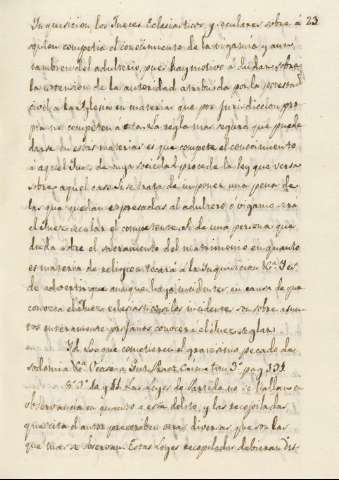 Inquisicion los Jueces Eclesiasticos, y seculares sobre á 23
quien competia el conocimiento de la vigamia y aun
tambien del adulterio, pues hay motivos á dudar sobre
la extension de la autoridad atribuida por la potestad
civil a la Iglesia en materias que por jurisdiccion pro
pia no competen á esta. La regla mas segura que puede
darse en estas materias es que compete el conocimiento
á aquel Juez, de cuya sociedad procede la ley que versa
sobre aquel caso. Si se trata de imponer una pena de
las que quedan expresadas al adultero o vigamo será
el Juez secular el competente. Si de una persona que
duda sobre el sacramento del matrimonio en quanto
es materia de religion tocará á la Inquisicion &c. Y es
de advertir que aunque haya incidentes en causa de que
conozca el Juez eclesiastico si los incidentes son sobre asun
tos meramente profanos conocerá el Juez seglar.
Yd. Los que cometieren el gravisimo pecado de
sodomia &c. Vease a
§. 3º. Las leyes de Partida no se hallan en
observancia en quanto a este delito, y las recopiladas
que cita el autor prescriben otras diversas que son las
que mas se observan. Estas Leyes recopiladas debieran